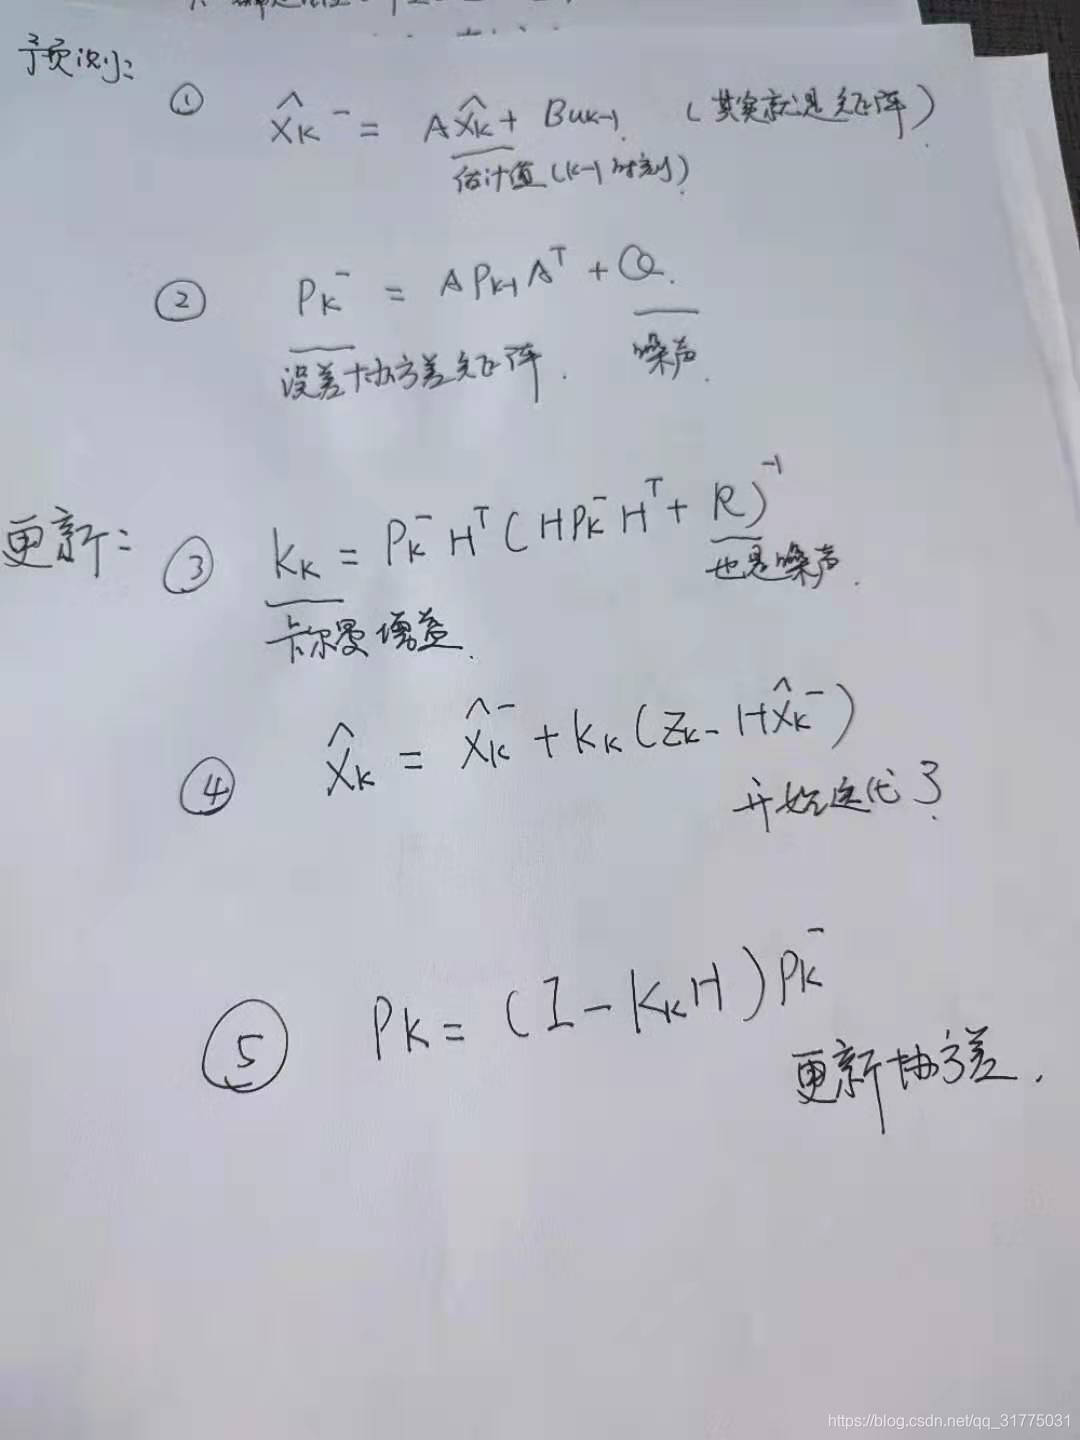 预测:
① X̂ₖ⁻ = AX̂ₖ + Buₖ₋₁ (其实就是矩阵)
估计值(k-1时刻)
② Pₖ⁻ = APₖ₋₁Aᵀ + Q.
误差协方差矩阵. 噪声.
更新: ③ Kₖ = Pₖ⁻Hᵀ(HPₖ⁻Hᵀ + R)⁻¹
也是噪声.
卡尔曼增益.
④ X̂ₖ = X̂ₖ⁻ + Kₖ(Zₖ - HX̂ₖ⁻)
开始迭代了.
⑤ Pₖ = (I - KₖH)Pₖ⁻
更新协方差.
https://blog.csdn.net/qq_31775031